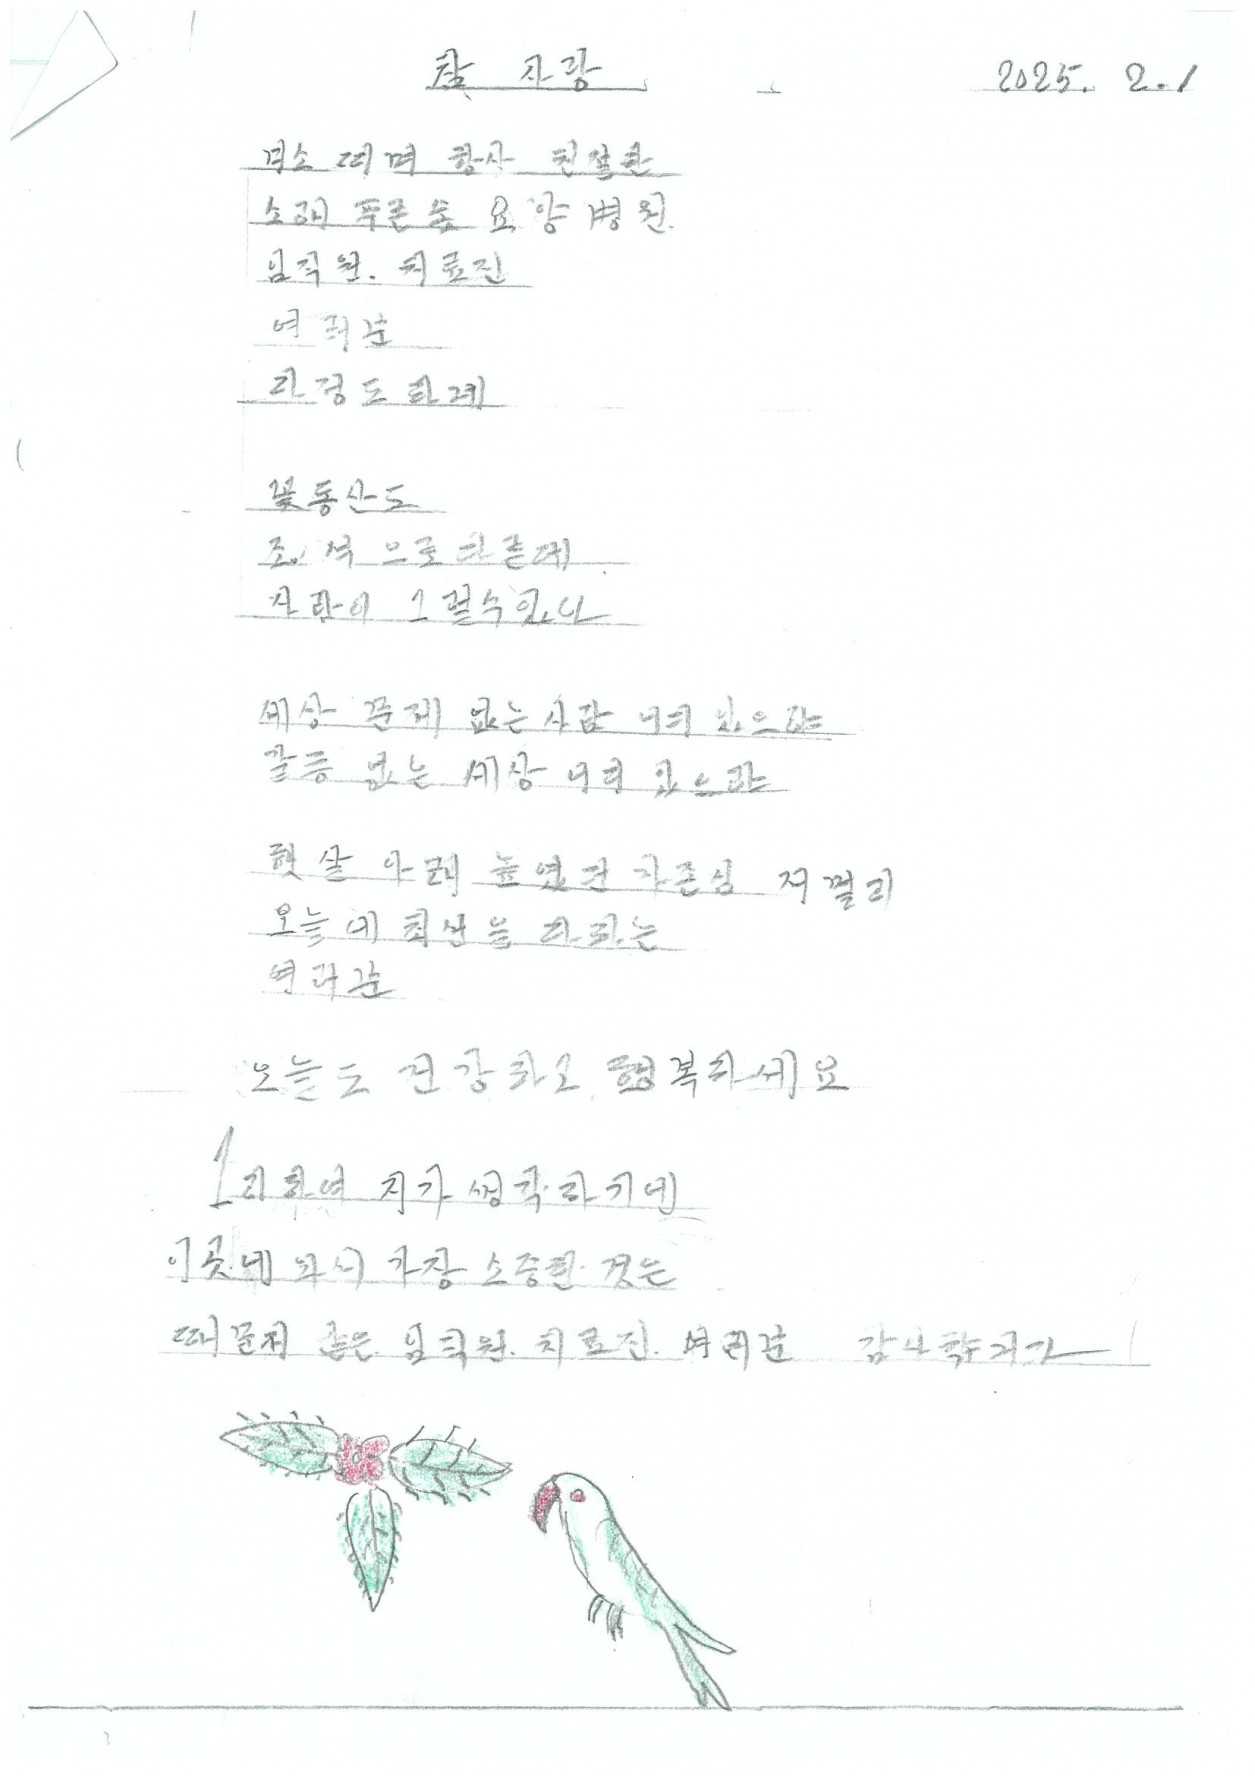 참 사랑
2025. 2. 1
미소 띠며 항상 친절한
소래 푸른숲 요양病원
임직원. 치료진
여러분
다정도 하레
꽃동산도
조.석 으로 다른데
사람이 그럴수있나
세상 문제 없는 사람 어디 있으랴
갈등 없는 세상 어디 있으랴
햇살 아래 눕혔던 자존심
오늘에 최선을 다하는
여러분
오늘도 건강하고 행복하세요
그리하여 지가 생각하기에
이곳에 와서 가장 소중한 것은
때묻지 않은 임직원. 치료진. 여러분